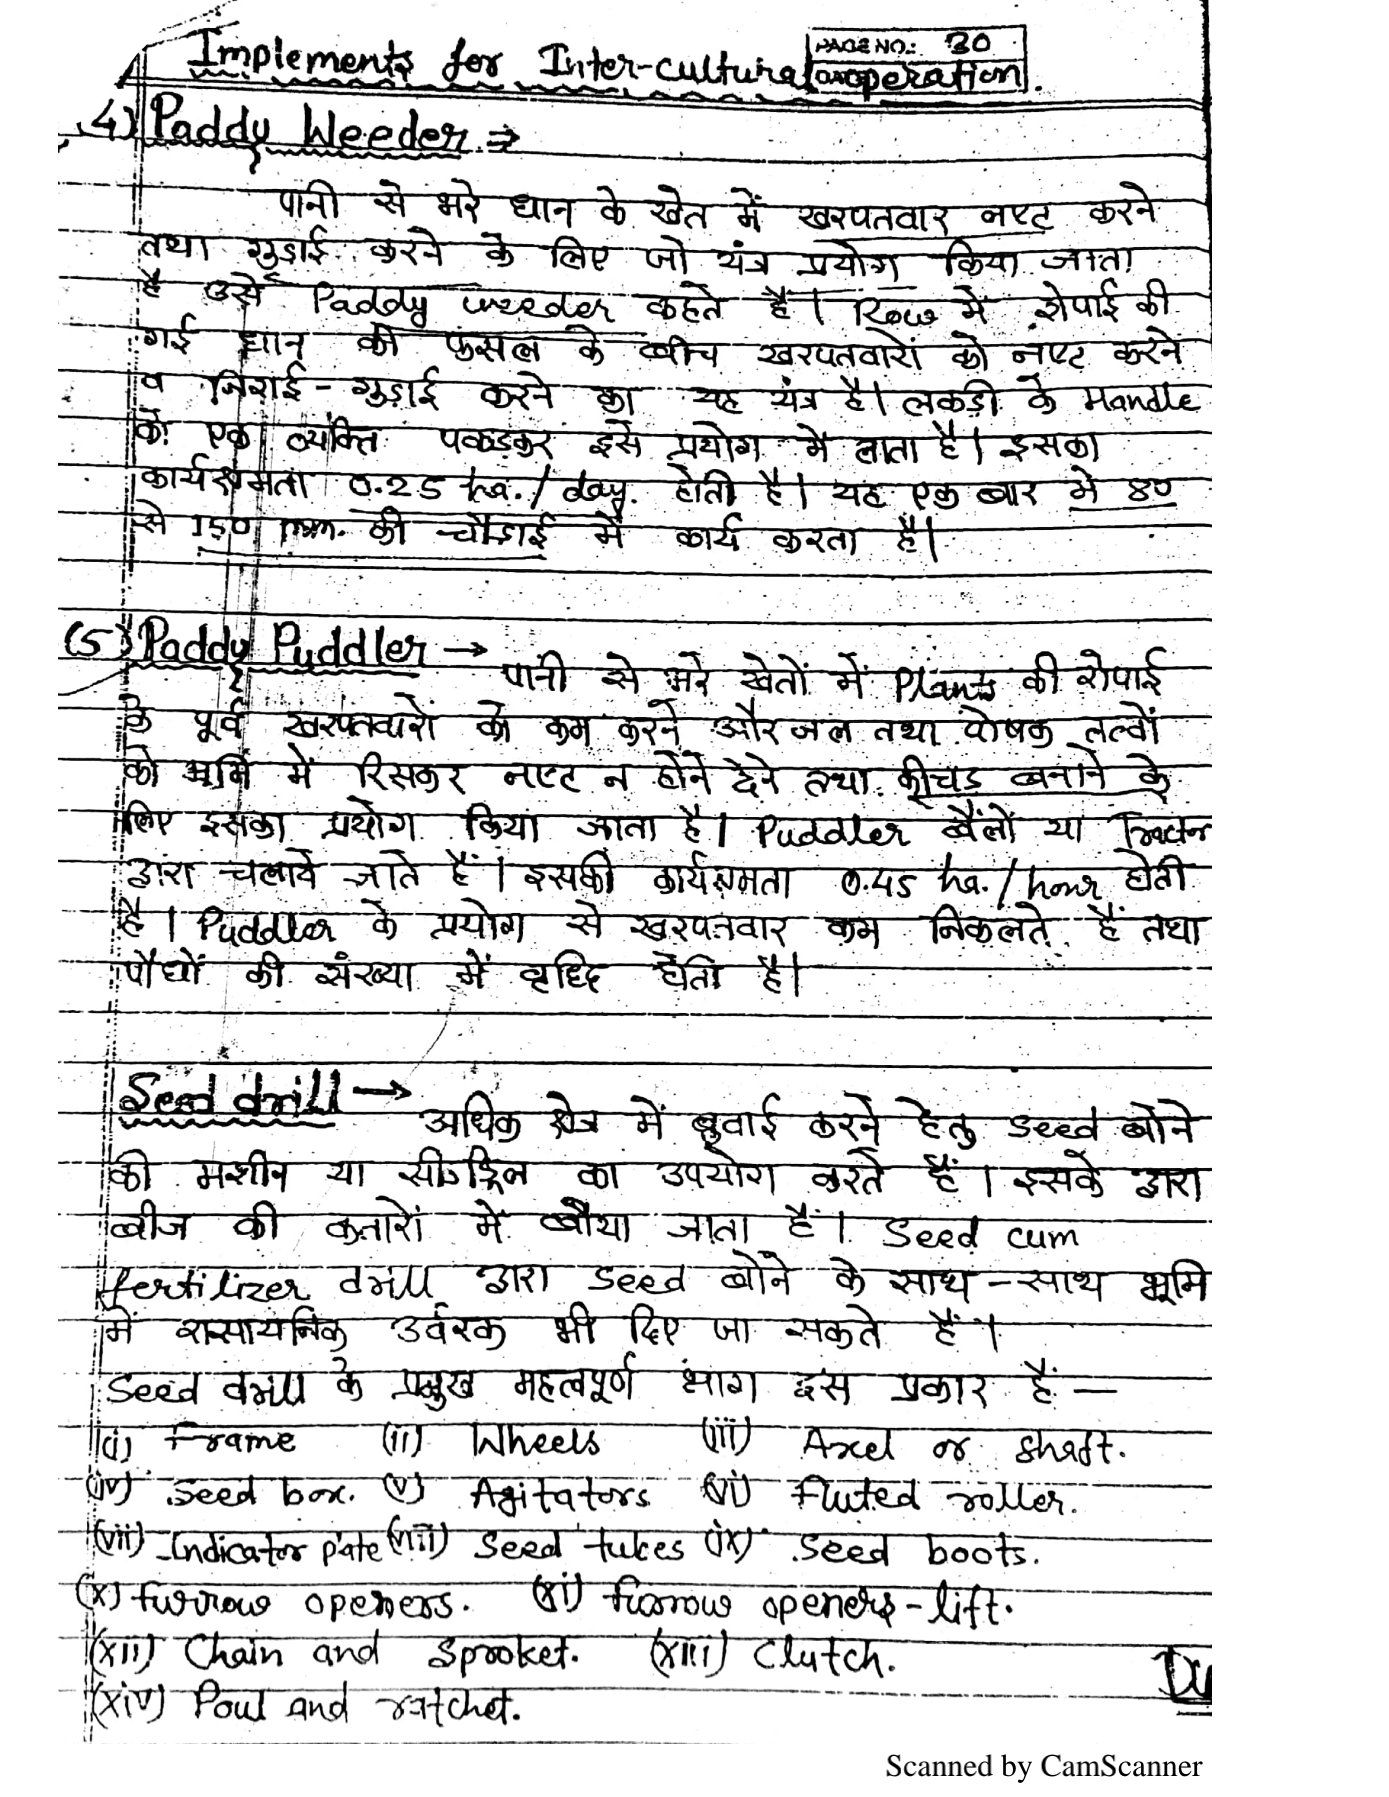 PAGE NO.: 30
Implements for Inter-cultural operation.
4) Paddy Weeder ⇒
पानी से भरे धान के खेत में खरपतवार नष्ट करने
तथा गुडाई करने के लिए जो यंत्र प्रयोग किया जाता
है उसे Paddy weeder कहते हैं। Row में रोपाई की
गई धान की फसल के बीच खरपतवारों को नष्ट करने
व निराई-गुड़ाई करने का यह यंत्र है। लकड़ी के Handle
को एक व्यक्ति पकड़कर इसे प्रयोग में लाता है। इसका
कार्यक्षमता 0.25 ha./day. होती है। यह एक बार में 80
से 150 mm. की चौडाई में कार्य करता है।
(5) Paddy Puddler →
पानी से भरे खेतों में Plants की रोपाई
के पूर्व खरपतवारों को कम करने और जल तथा पोषक तत्वों
को भूमि में रिसकर नष्ट न होने देने तथा कीचड बनाने के
लिए इसका प्रयोग किया जाता है। Puddler बैलों या Tractor
द्वारा चलाये जाते हैं। इसकी कार्यक्षमता 0.45 ha./hour होती
है। Puddler के प्रयोग से खरपतवार कम निकलते हैं तथा
पौधों की संख्या में वृद्धि होती है।
Seed drill →
अधिक क्षेत्र में बुवाई करने हेतु seed बोने
की मशीन या सीडड्रिल का उपयोग करते हैं। इसके द्वारा
बीज की कतारों में बोया जाता हैं। Seed cum
fertilizer drill द्वारा seed बोने के साथ-साथ भूमि
में रासायनिक उर्वरक भी दिए जा सकते हैं।
Seed drill के प्रमुख महत्वपूर्ण भाग इस प्रकार हैं -
(i) Frame (ii) Wheels (iii) Axel or shaft.
(iv) Seed box. (v) Agitators (vi) Fluted roller.
(vii) Indicator plate (viii) Seed tubes (ix) Seed boots.
(x) furrow openers. (xi) furrow openers-lift.
(xii) Chain and sproket. (xiii) Clutch.
(xiv) Poul and ratchet.
Scanned by CamScanner